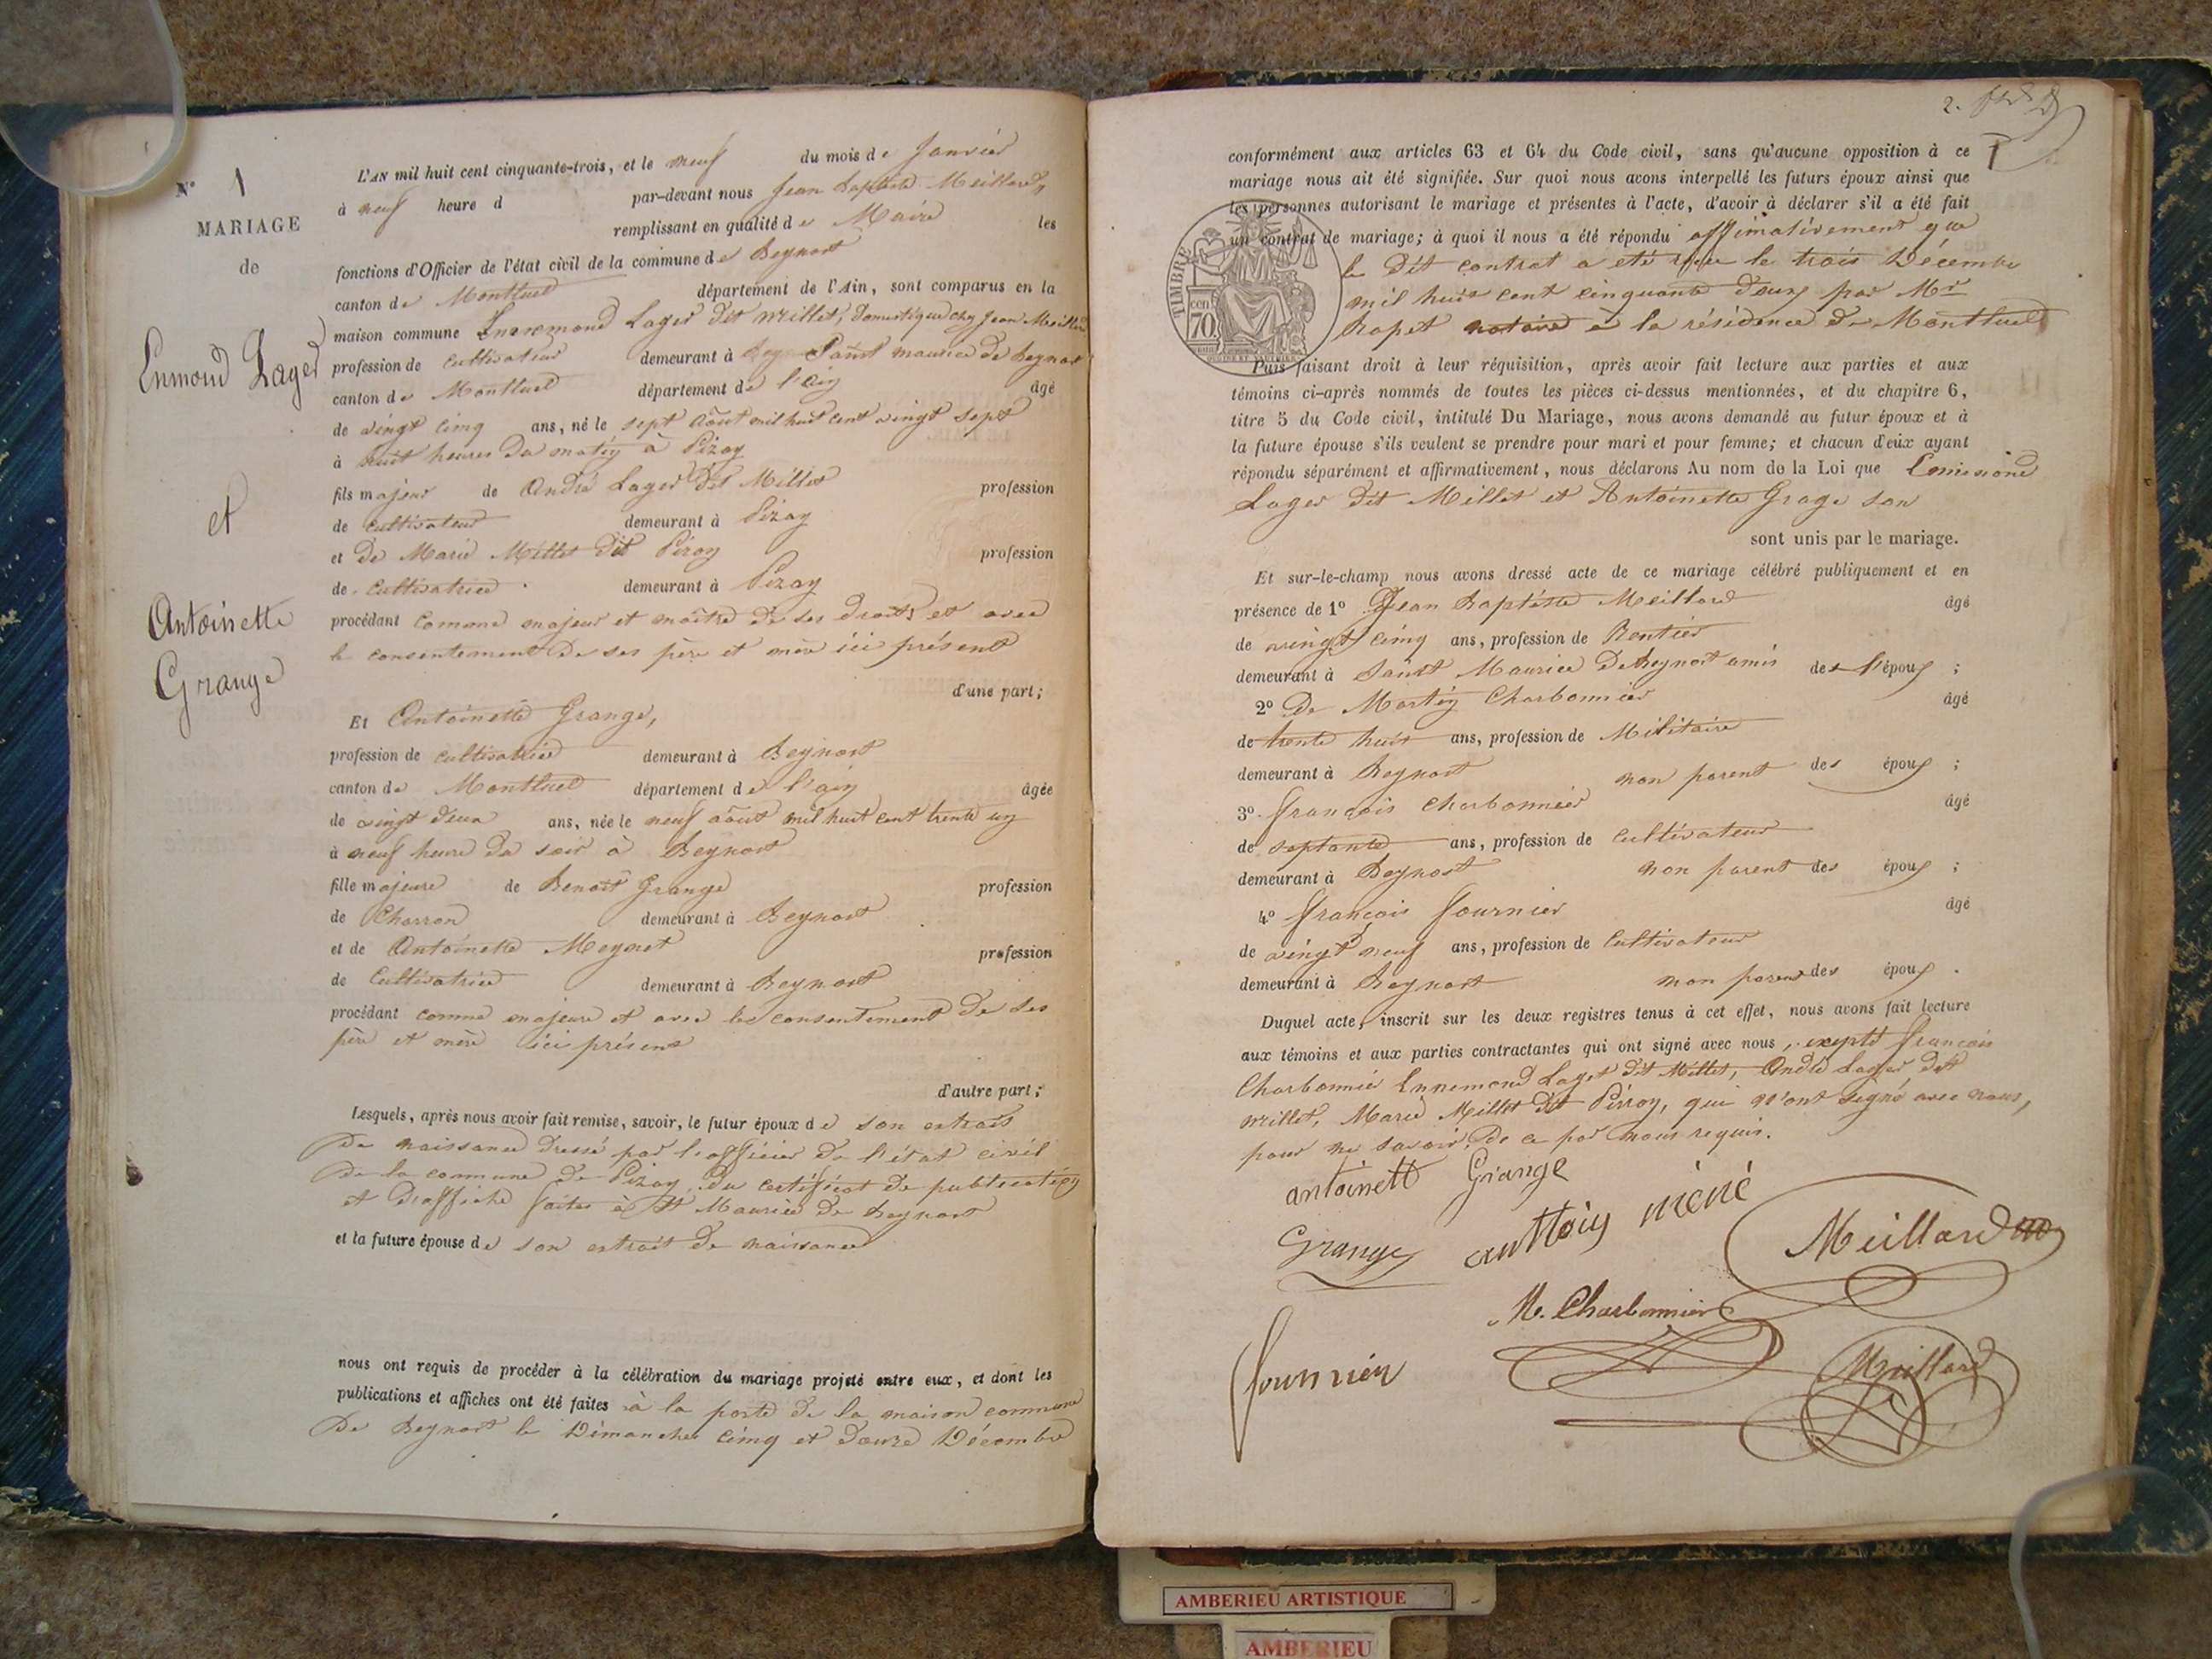 N° 1
MARIAGE
de
Enmond Lager
et
Antoinette
Grange
L'AN mil huit cent cinquante-trois, et le neuf du mois de Janvier
à neuf heure d par-devant nous Jean Baptiste Meillard,
remplissant en qualité de Maire les
fonctions d'Officier de l'état civil de la commune de Beynost
canton de Montluel département de l'Ain, sont comparus en la
maison commune Ennemond Lager dit Millet, domestique chez Jean Meillard
profession de cultivateur demeurant à Saint Maurice de Beynost
canton de Montluel département de l'ain âgé
de vingt cinq ans, né le sept Août mil huit cent vingt sept
à huit heures du matin à Pizay
fils majeur de André Lager dit Millet profession
de cultivateur demeurant à Pizay
et de Marie Millet dit Pizoy profession
de cultivatrice demeurant à Pizay
procédant comme majeur et maître de ses droits et avec
le consentement de ses père et mère ici présent
d'une part;
Et Antoinette Grange,
profession de cultivatrice demeurant à Beynost
canton de Montluel département de l'ain âgée
de vingt deux ans, née le neuf août mil huit cent trente un
à neuf heure du soir à Beynost
fille majeure de Benoît Grange profession
de Charron demeurant à Beynost
et de Antoinette Meynet profession
de Cultivatrice demeurant à Beynost
procédant comme majeure et avec le consentement de ses
père et mère ici présent
d'autre part;
Lesquels, après nous avoir fait remise, savoir, le futur époux de son extrait
de naissance dressé par l'officier de l'état civil
de la commune de Pizay, du certificat de publication
et d'affiche faites à St Maurice de Beynost
et la future épouse de son extrait de naissance
nous ont requis de procéder à la célébration du mariage projeté entre eux, et dont les
publications et affiches ont été faites à la porte de la maison commune
de Beynost le Dimanches cinq et douze Décembre
2.
conformément aux articles 63 et 64 du Code civil, sans qu'aucune opposition à ce
mariage nous ait été signifiée. Sur quoi nous avons interpellé les futurs époux ainsi que
les personnes autorisant le mariage et présentes à l'acte, d'avoir à déclarer s'il a été fait
un contrat de mariage; à quoi il nous a été répondu affimativement que
le dit contrat a eté reçu le trois Décembre
mil huit cent cinquante deux par Mr
Rapet notaire à la résidence de Montluel
TIMBRE
70
Puis faisant droit à leur réquisition, après avoir fait lecture aux parties et aux
témoins ci-après nommés de toutes les pièces ci-dessus mentionnées, et du chapitre 6,
titre 5 du Code civil, intitulé Du Mariage, nous avons demandé au futur époux et à
la future épouse s'ils veulent se prendre pour mari et pour femme; et chacun d'eux ayant
répondu séparément et affirmativement, nous déclarons Au nom de la Loi que
Lager dit Millet et Antoinette Grage son
sont unis par le mariage.
Et sur-le-champ nous avons dressé acte de ce mariage célébré publiquement et en
présence de 1° Jean Baptiste Meillard âgé
de vingt cinq ans, profession de Rentier
demeurant à Saint Maurice De Beynost amis de l'époux ;
2° De Martin Charbonnier âgé
de trente huit ans, profession de Militaire
demeurant à Beynost non parent des époux ;
3° François Charbonnier âgé
de septante ans, profession de Cultivateur
demeurant à Beynost non parent des époux ;
4° François Fournier âgé
de vingt neuf ans, profession de Cultivateur
demeurant à Beynost non parent des époux .
Duquel acte, inscrit sur les deux registres tenus à cet effet, nous avons fait lecture
aux témoins et aux parties contractantes qui ont signé avec nous, excepté François
Charbonnier Ennemond Laget dit Millet, André Lager dit
Millet, Marie Millet dit Pizoy, qui n'ont signé avec nous,
pour ne savoir, de ce par nous requis.
antoinett Grange
Grange
Meillard
M. Charbonnier
fournier
Meillard
AMBERIEU ARTISTIQUE
AMBERIEU